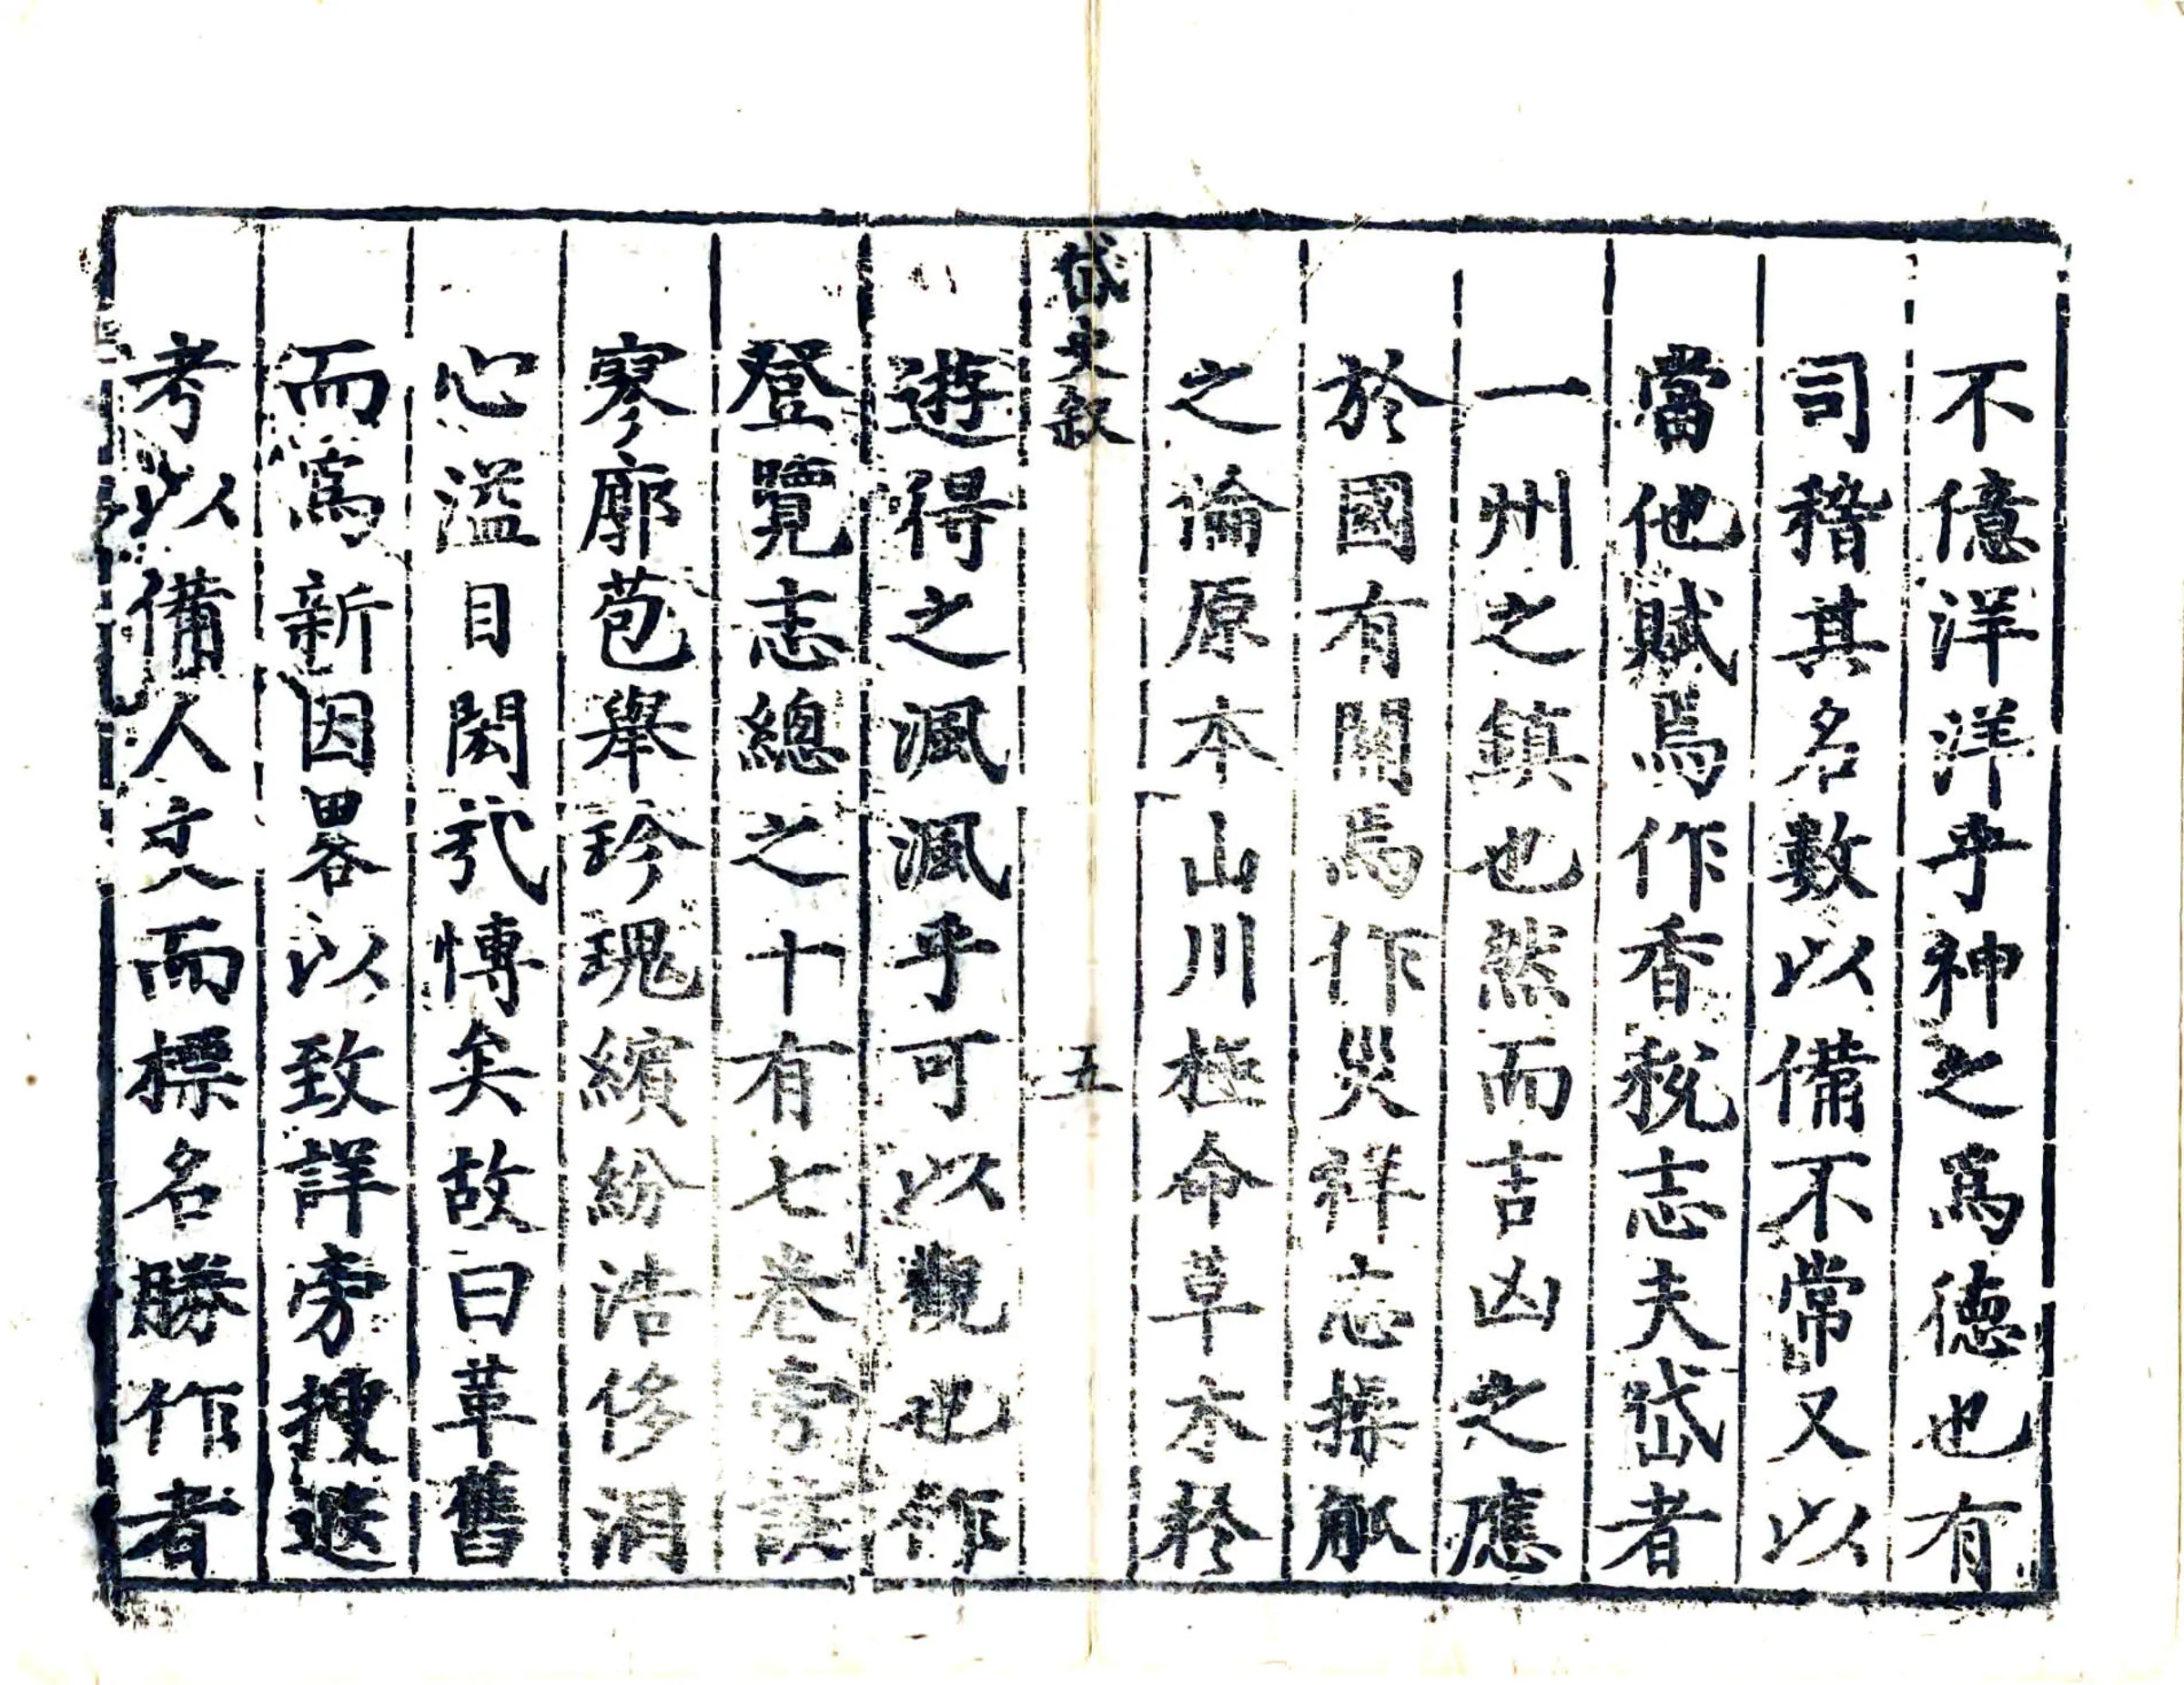 不億洋洋乎神之爲德也有
司稽其名數以備不常又以
當他賦焉作香稅志夫岱者
一州之鎮也然而吉凶之應
於國有關焉作災祥志操觚
之論原本山川極命草木於
岱史敘
五
遊得之渢渢乎可以觀也作
登覽志總之十有七卷旁
寥廓苞舉珍瑰繽紛浩侈洞
心溢目閎配博矣故曰革舊
而爲新因畧以致詳旁搜遐
考以備人文而標名勝作者